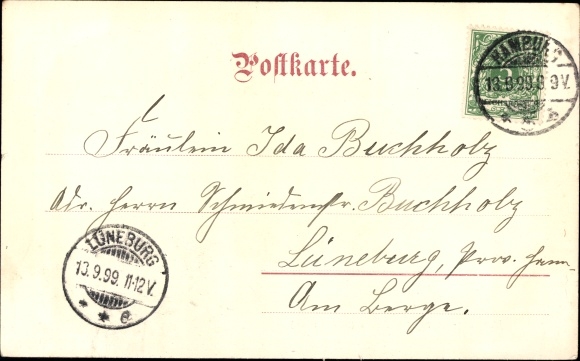 Postkarte.
HAMBURG
13.9.99.8 9V.
Fräulein Ida Buchholz
Adr. Herrn Schmiedemstr. Buchholz
Lüneburg, Prov. Hann.
Am Berge.
LÜNEBURG
13.9.99. 11-12V.
e